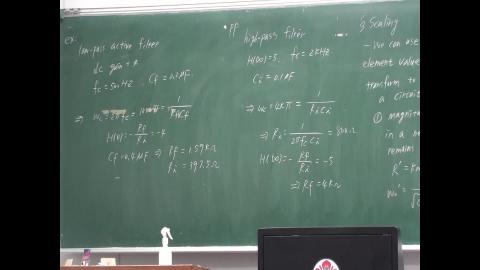 ex:
low-pass active filter
dc gain = 4
fc = 500 Hz Cf = 0.2μF
⇒ ωc = 2πfc = 1000π = 1/RfCf
H(0) = -Rf/Ri = -4
⇒ Rf = 1.59KΩ
Ri = 397.5Ω
high-pass filter
H(∞) = 5, fc = 2KHz
Ci = 0.1μF
⇒ ωc = 4Kπ = 1/RiCi
⇒ Ri = 1/2πfcCi = 800Ω
H(∞) = -Rf/Ri = -5
⇒ Rf = 4KΩ
§ Scaling
- We can use
element value
transform to
a circuit
① magni
in a n
remains
R' = Km
ω0' =